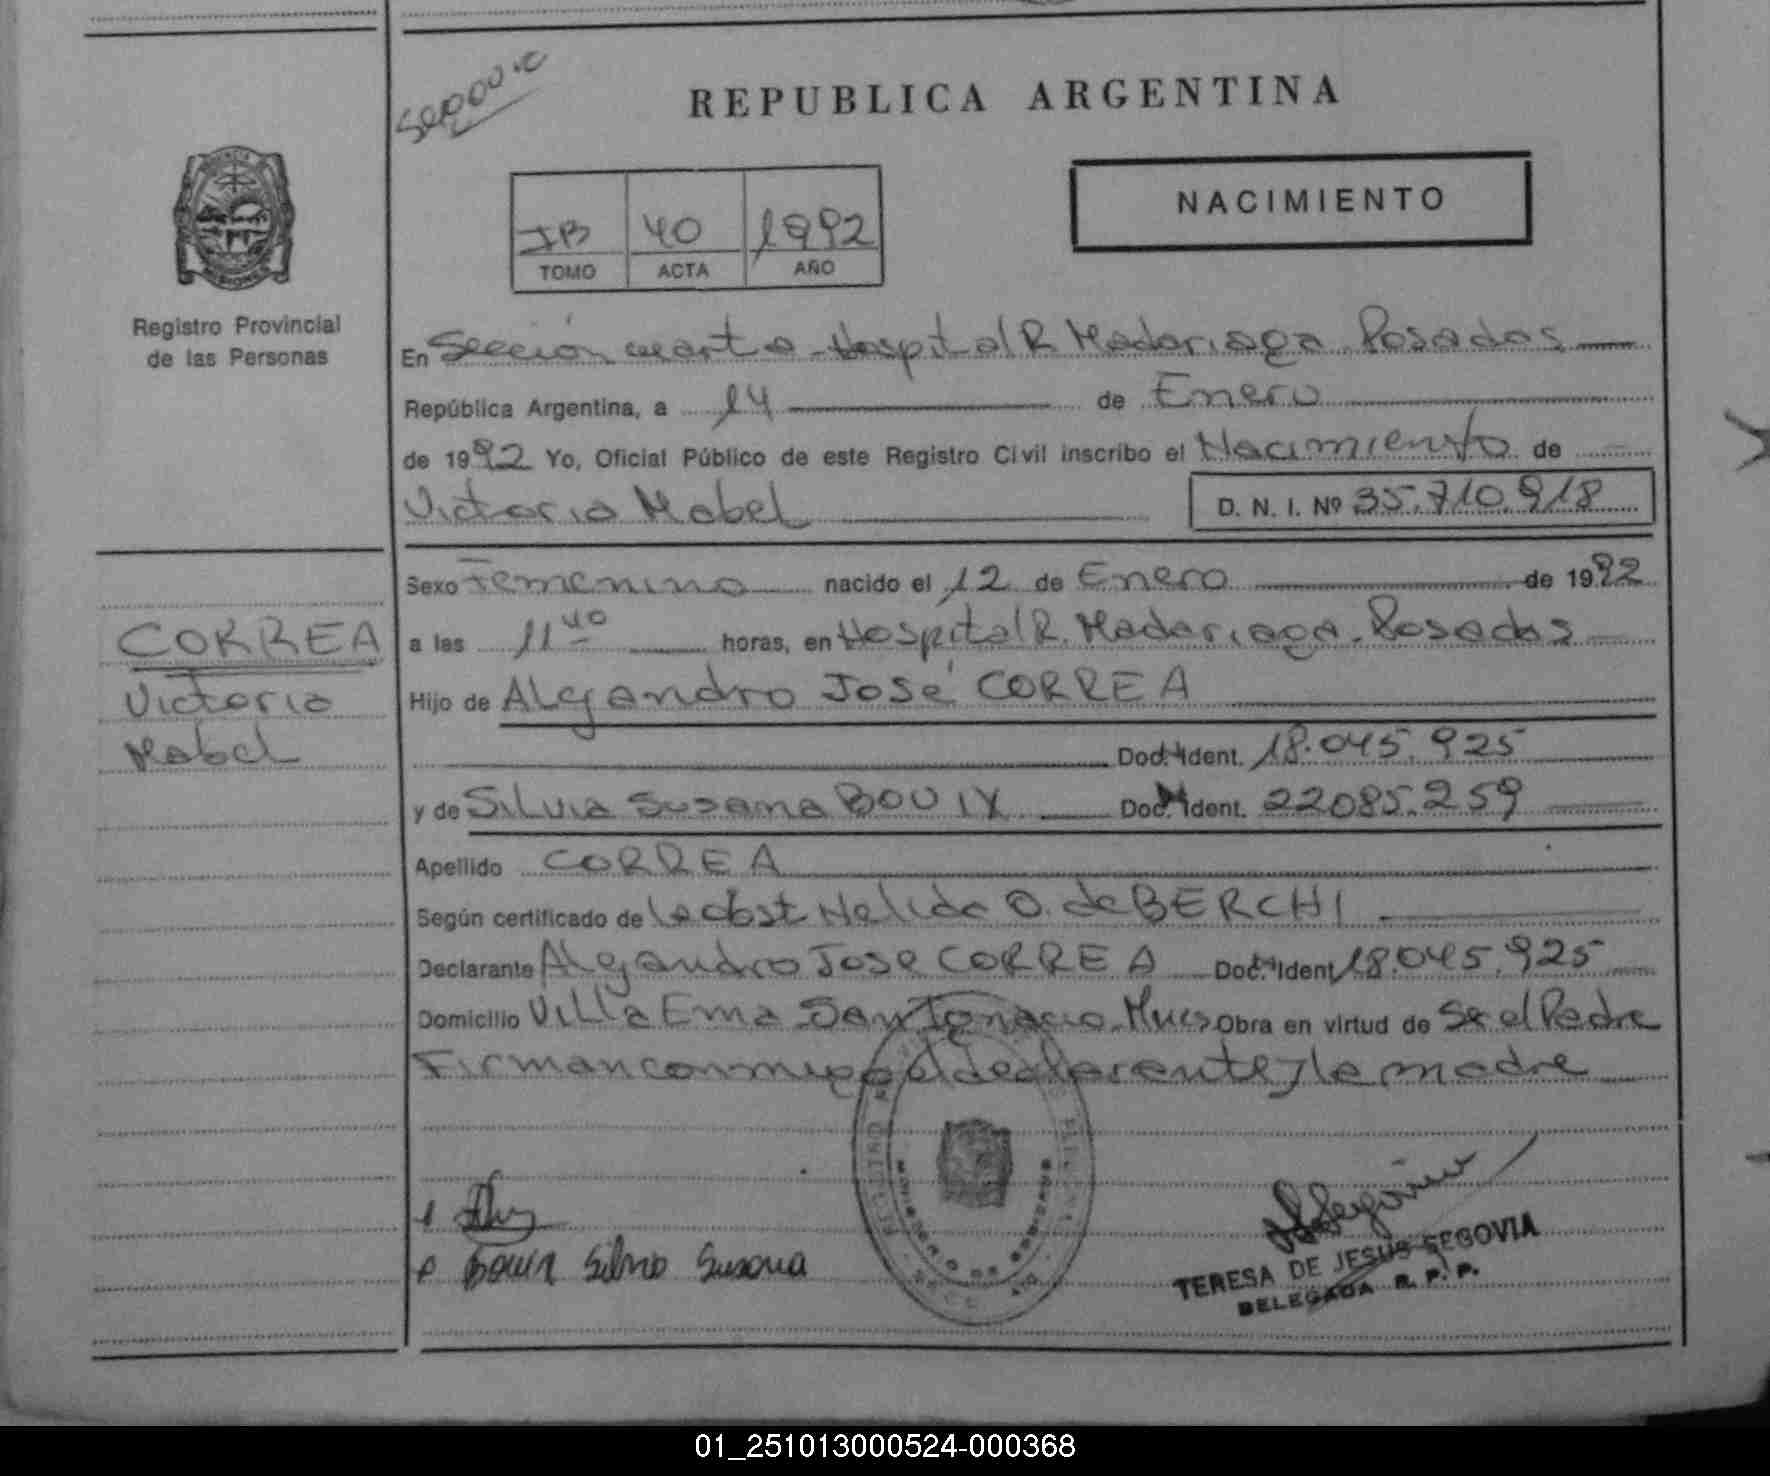 REPUBLICA ARGENTINA
NACIMIENTO
IB 40 1992
TOMO ACTA AÑO
Registro Provincial
de las Personas
En Sección cuarta Hospital R. Madariaga Posadas
República Argentina, a 14 de Enero
de 1992 Yo, Oficial Público de este Registro Civil inscribo el Nacimiento de
Victoria Mabel D. N. I. Nº 35.710.918
Sexo Femenino nacido el 12 de Enero de 1992
a las 11 40 horas, en Hospital R. Madariaga. Posadas
Hijo de Alejandro José CORREA
Doc. Ident. 18.045.925
y de Silvia Susana BOUIX Doc. Ident. 22085.259
Apellido CORREA
Según certificado de la obst Nelida O. de BERCHI
Declarante Alejandro Jose CORREA Doc. Ident 18.045.925
Domicilio Villa Ema San Ignacio Mnes Obra en virtud de Se el Padre
Firman conmigo el declarante y la madre
CORREA
Victoria
Mabel
Silvia Susana
TERESA DE JESUS SEGOVIA
DELEGADA R. P. P.
01_251013000524-000368